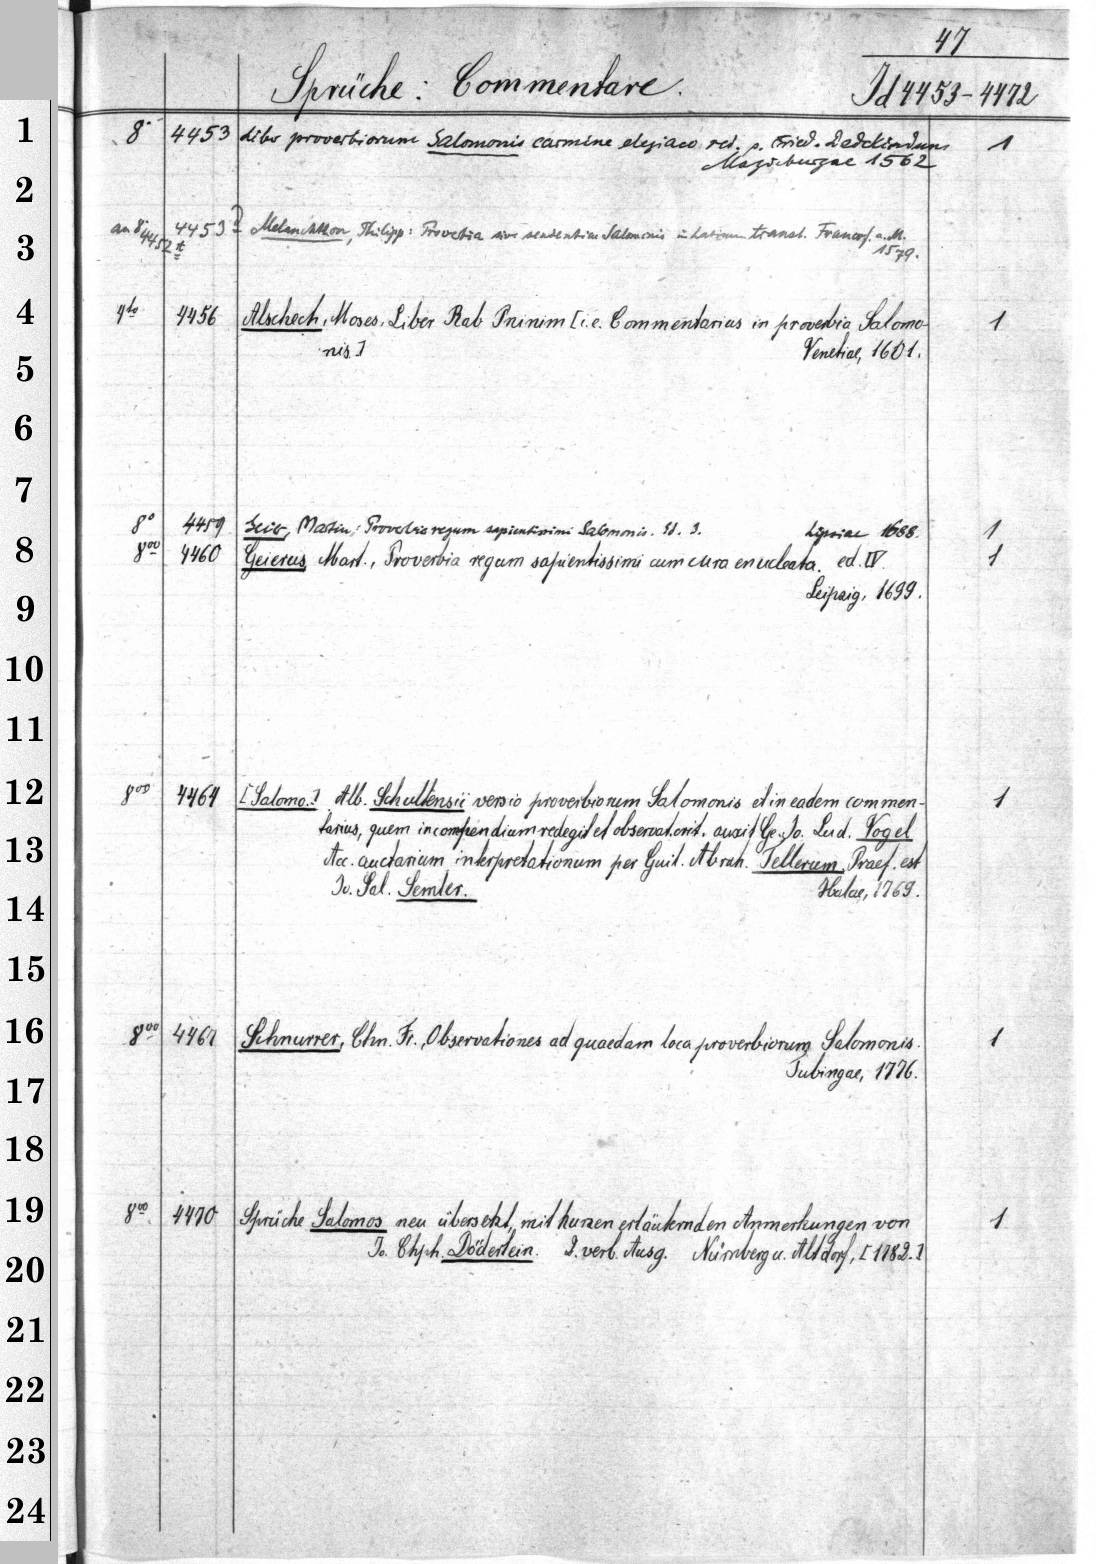 47
Sprüche: Commentare.
Id 4453-4472
1
8° 4453 Liber proverbiorum Salomonis carmine elegiaco red. p. Fried. Dedekindum 1
Magdeburgae 1562
2
an 8° 4453 Melanchthon, Philipp: Proverbia sive sententiae Salomonis in latinum transl. Francof. a. M.
3
4452
1579.
4
4to 4456 Alschech, Moses, Liber Rab Pninim [i.e. Commentarius in proverbia Salomo- 1
nis.] Venetiae, 1601.
5
6
7
8° 4459 Geier, Martin: Proverbia regum sapientissimi Salomonis. Ed. Lipsiae 1688. 1
8
8vo 4460 Geierus, Mart., Proverbia regum sapientissimi cum cura enucleata. ed. IV. 1
Leipzig, 1699.
9
10
11
12
8vo 4464 [Salomo.] Alb. Schultensii versio proverbiorum Salomonis et in eadem commen- 1
tarius, quem in compendium redegit et observat. crit. auxit Ge. Jo. Lud. Vogel
13
Acc. auctarium interpretationum per Guil. Abrah. Tellerum. Praef. est
Jo. Sal. Semler. Halae, 1769.
14
15
16
8vo 4467 Schnurrer, Chn. Fr., Observationes ad quaedam loca proverbiorum Salomonis. 1
Tubingae, 1776.
17
18
19
8vo 4470 Sprüche Salomos neu übersetzt, mit kurzen erläuternden Anmerkungen von 1
Jo. Chph. Döderlein. 2. verb. Ausg. Nürnberg u. Altdorf, [1782.]
20
21
22
23
24